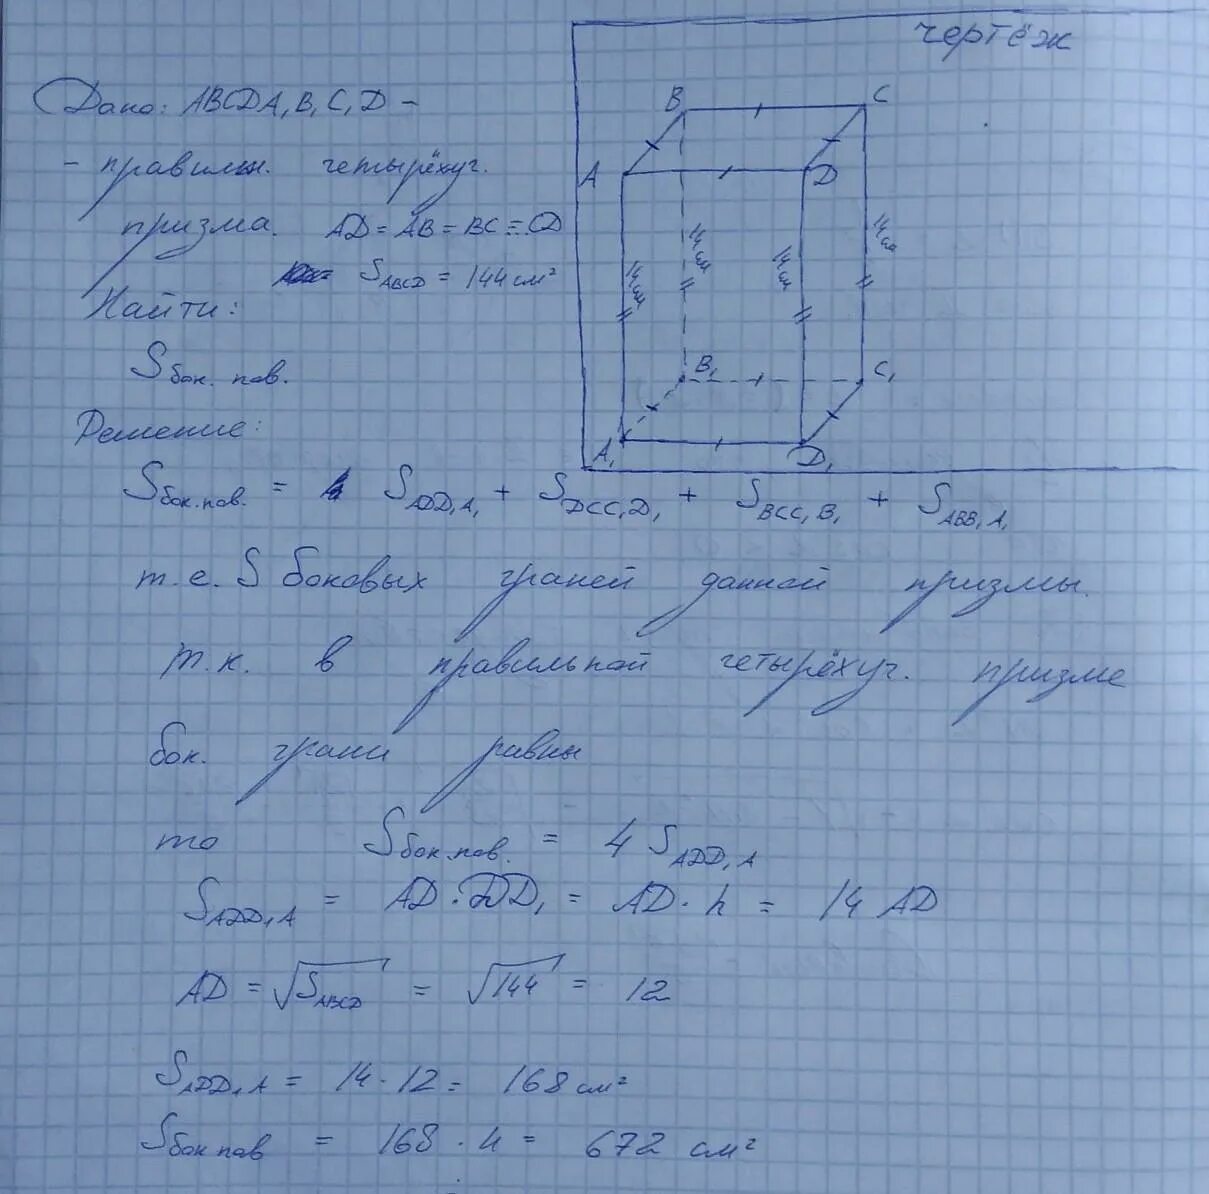 чертёж
Дано: ABCDA₁B₁C₁D –
– правильн. четырёхуг.
призма. AD = AB = BC = CD
S ABCD = 144 см²
Найти:
S бок. пов.
B
C
A
D
14 см
14 см
14 см
14 см
B₁
C₁
A₁
D₁
Решение:
S бок. пов. = S ADD₁A₁ + S DCC₁D₁ + S BCC₁B₁ + S ABB₁A₁
т.е. S боковых граней данной призмы.
т.к. в правильной четырёхуг. призме
бок. грани равны
то S бок. пов. = 4 S ADD₁A
S ADD₁A = AD · DD₁ = AD · h = 14 AD
AD = √S ABCD = √144 = 12
S ADD₁A = 14 · 12 = 168 см²
S бок пов = 168 · 4 = 672 см²